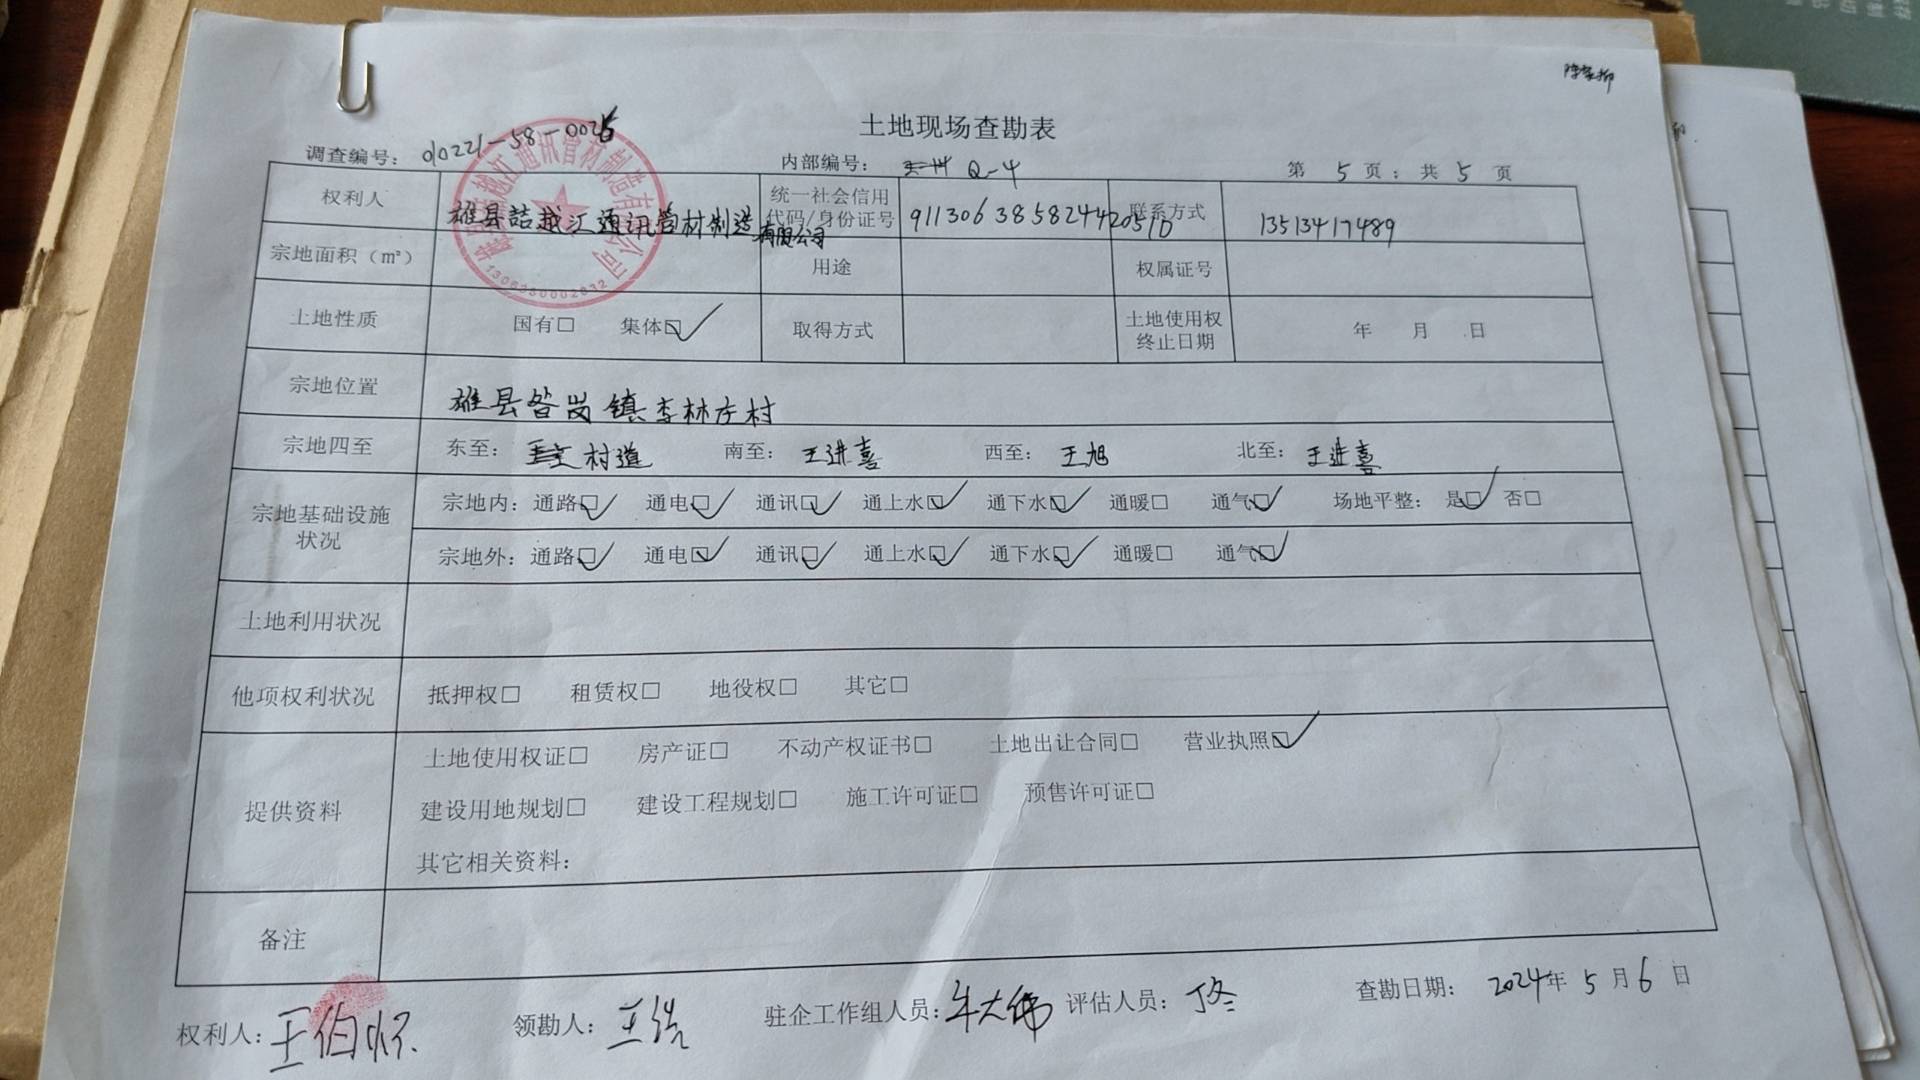 土地现场查勘表
调查编号： 010221-58-0025
内部编号： Q-4
第 5 页；共 5 页
权利人 雄县喆越江通讯管材制造有限公司
统一社会信用代码/身份证号 91130638582442051D
联系方式 13513417489
宗地面积（m²） 用途 权属证号
土地性质 国有□ 集体☑ 取得方式 土地使用权终止日期 年 月 日
宗地位置 雄县昝岗镇李林庄村
宗地四至 东至： 村道 南至： 王进喜 西至： 王旭 北至： 王进喜
宗地基础设施状况
宗地内：通路☑ 通电☑ 通讯☑ 通上水☑ 通下水☑ 通暖□ 通气☑ 场地平整： 是☑ 否□
宗地外：通路☑ 通电☑ 通讯☑ 通上水☑ 通下水☑ 通暖□ 通气☑
土地利用状况
他项权利状况 抵押权□ 租赁权□ 地役权□ 其它□
提供资料
土地使用权证□ 房产证□ 不动产权证书□ 土地出让合同□ 营业执照☑
建设用地规划□ 建设工程规划□ 施工许可证□ 预售许可证□
其它相关资料：
备注
权利人：王伯怀 领勘人： 驻企工作组人员：牛大伟 评估人员：丁冬 查勘日期： 2024年 5月 6日